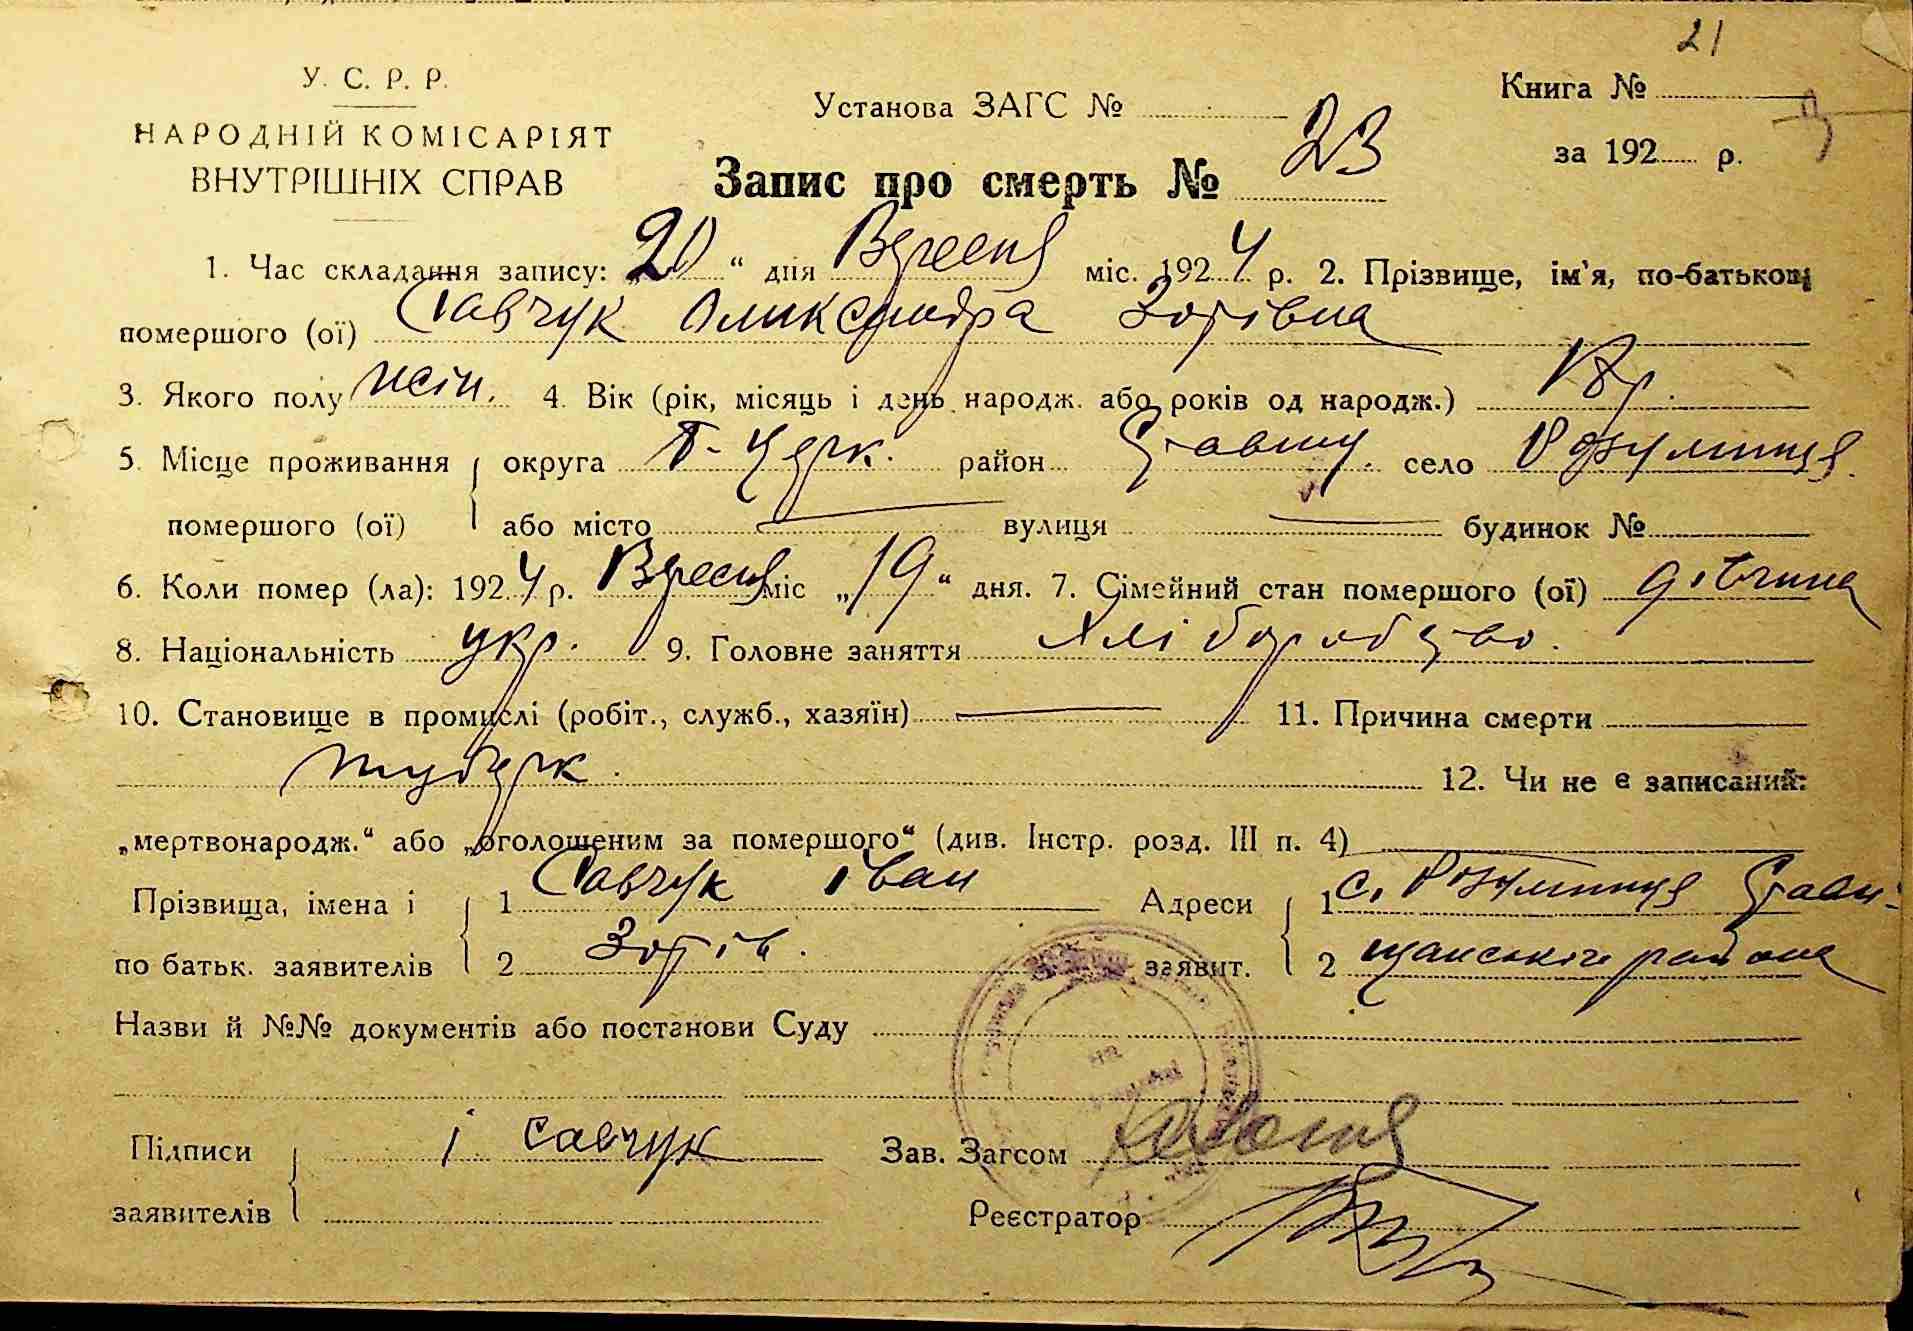 21
У. С. Р. Р.
НАРОДНІЙ КОМІСАРІЯТ
ВНУТРІШНІХ СПРАВ
Установа ЗАГС №
Книга №
за 192 р.
Запис про смерть № 23
1. Час складання запису: „20“ дня Вересня міс. 1924 р. 2. Прізвище, ім'я, по-батькови
померлого (ої) Савчук Олександра Зотівна
3. Якого полу жін. 4. Вік (рік, місяць і день народж. або років од народж.) 18 р.
5. Місце проживання округа Б-Церк. район Ставищ. село Розумниця
помершого (ої) або місто — вулиця — будинок №
6. Коли помер (ла): 1924 р. Вересня міс „19“ дня. 7. Сімейний стан помершого (ої) дівчина
8. Національність укр. 9. Головне заняття Хліборобство.
10. Становище в промислі (робіт., служб., хазяїн) — 11. Причина смерти
туберк. 12. Чи не є записаний:
„мертвонародж.“ або „оголошеним за помершого“ (див. Інстр. розд. III п. 4)
Прізвища, імена і 1 Савчук Іван Адреси 1 с. Розумниця Стави-
по батьк. заявителів 2 Зотів. заявит. 2 щанського района
Назви й №№ документів або постанови Суду
Підписи І Савчук Зав. Загсом
заявителів Реєстратор